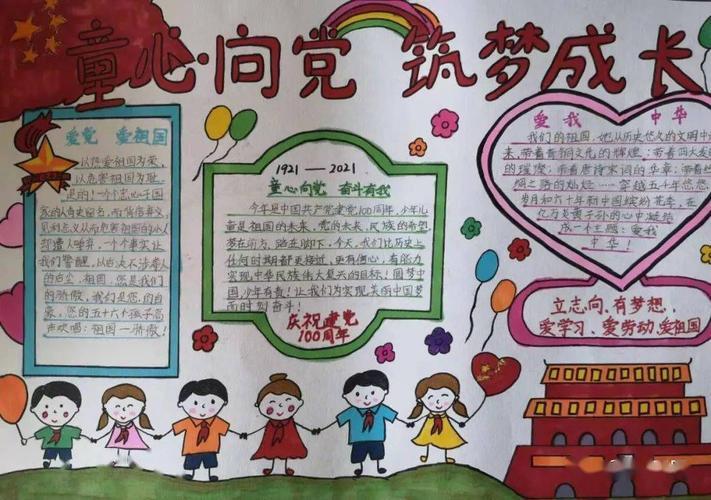 童心·向党 筑梦成长
爱党 爱祖国
以热爱祖国为荣,
以危害祖国为耻
是的!一个忠心于国
家的人 史留名,而背信弃义、
见利忘义从而危害祖国的小人
却遭人唾弃,一个个事实让
我们警醒,以 决不 人
的 ,祖国,您是我们
的骄傲,我们是您的自
豪,您的五十六个孩子高
声欢唱:祖国一骄傲!
1921—2021
童心向党 奋斗有我
今年是中国共产党建党100周年,少年儿
童是祖国的未来、党的未来,民族的希望
梦在前方,路在脚下,今天,我们比历史上
任何时期都更接近,更有信心,有能力
实现中华民族伟大复兴的目标!圆梦中
国,少年有责!让我们为实现美丽中国梦
而时刻奋斗!
庆祝建党
100周年
爱我 中华
我们的祖国,她从历史悠久的文明中
来,带着青铜文化的辉煌;带着四大发
的璀璨;带着唐诗宋词的华章;带着丝
绸之路的灿烂……穿越五十年悠悠
岁月和六十年新中国缤纷光年,在
亿万炎黄子孙的心中凝结
成一个主题:爱我
中华!
立志向、有梦想,
爱学习、爱劳动、爱祖国